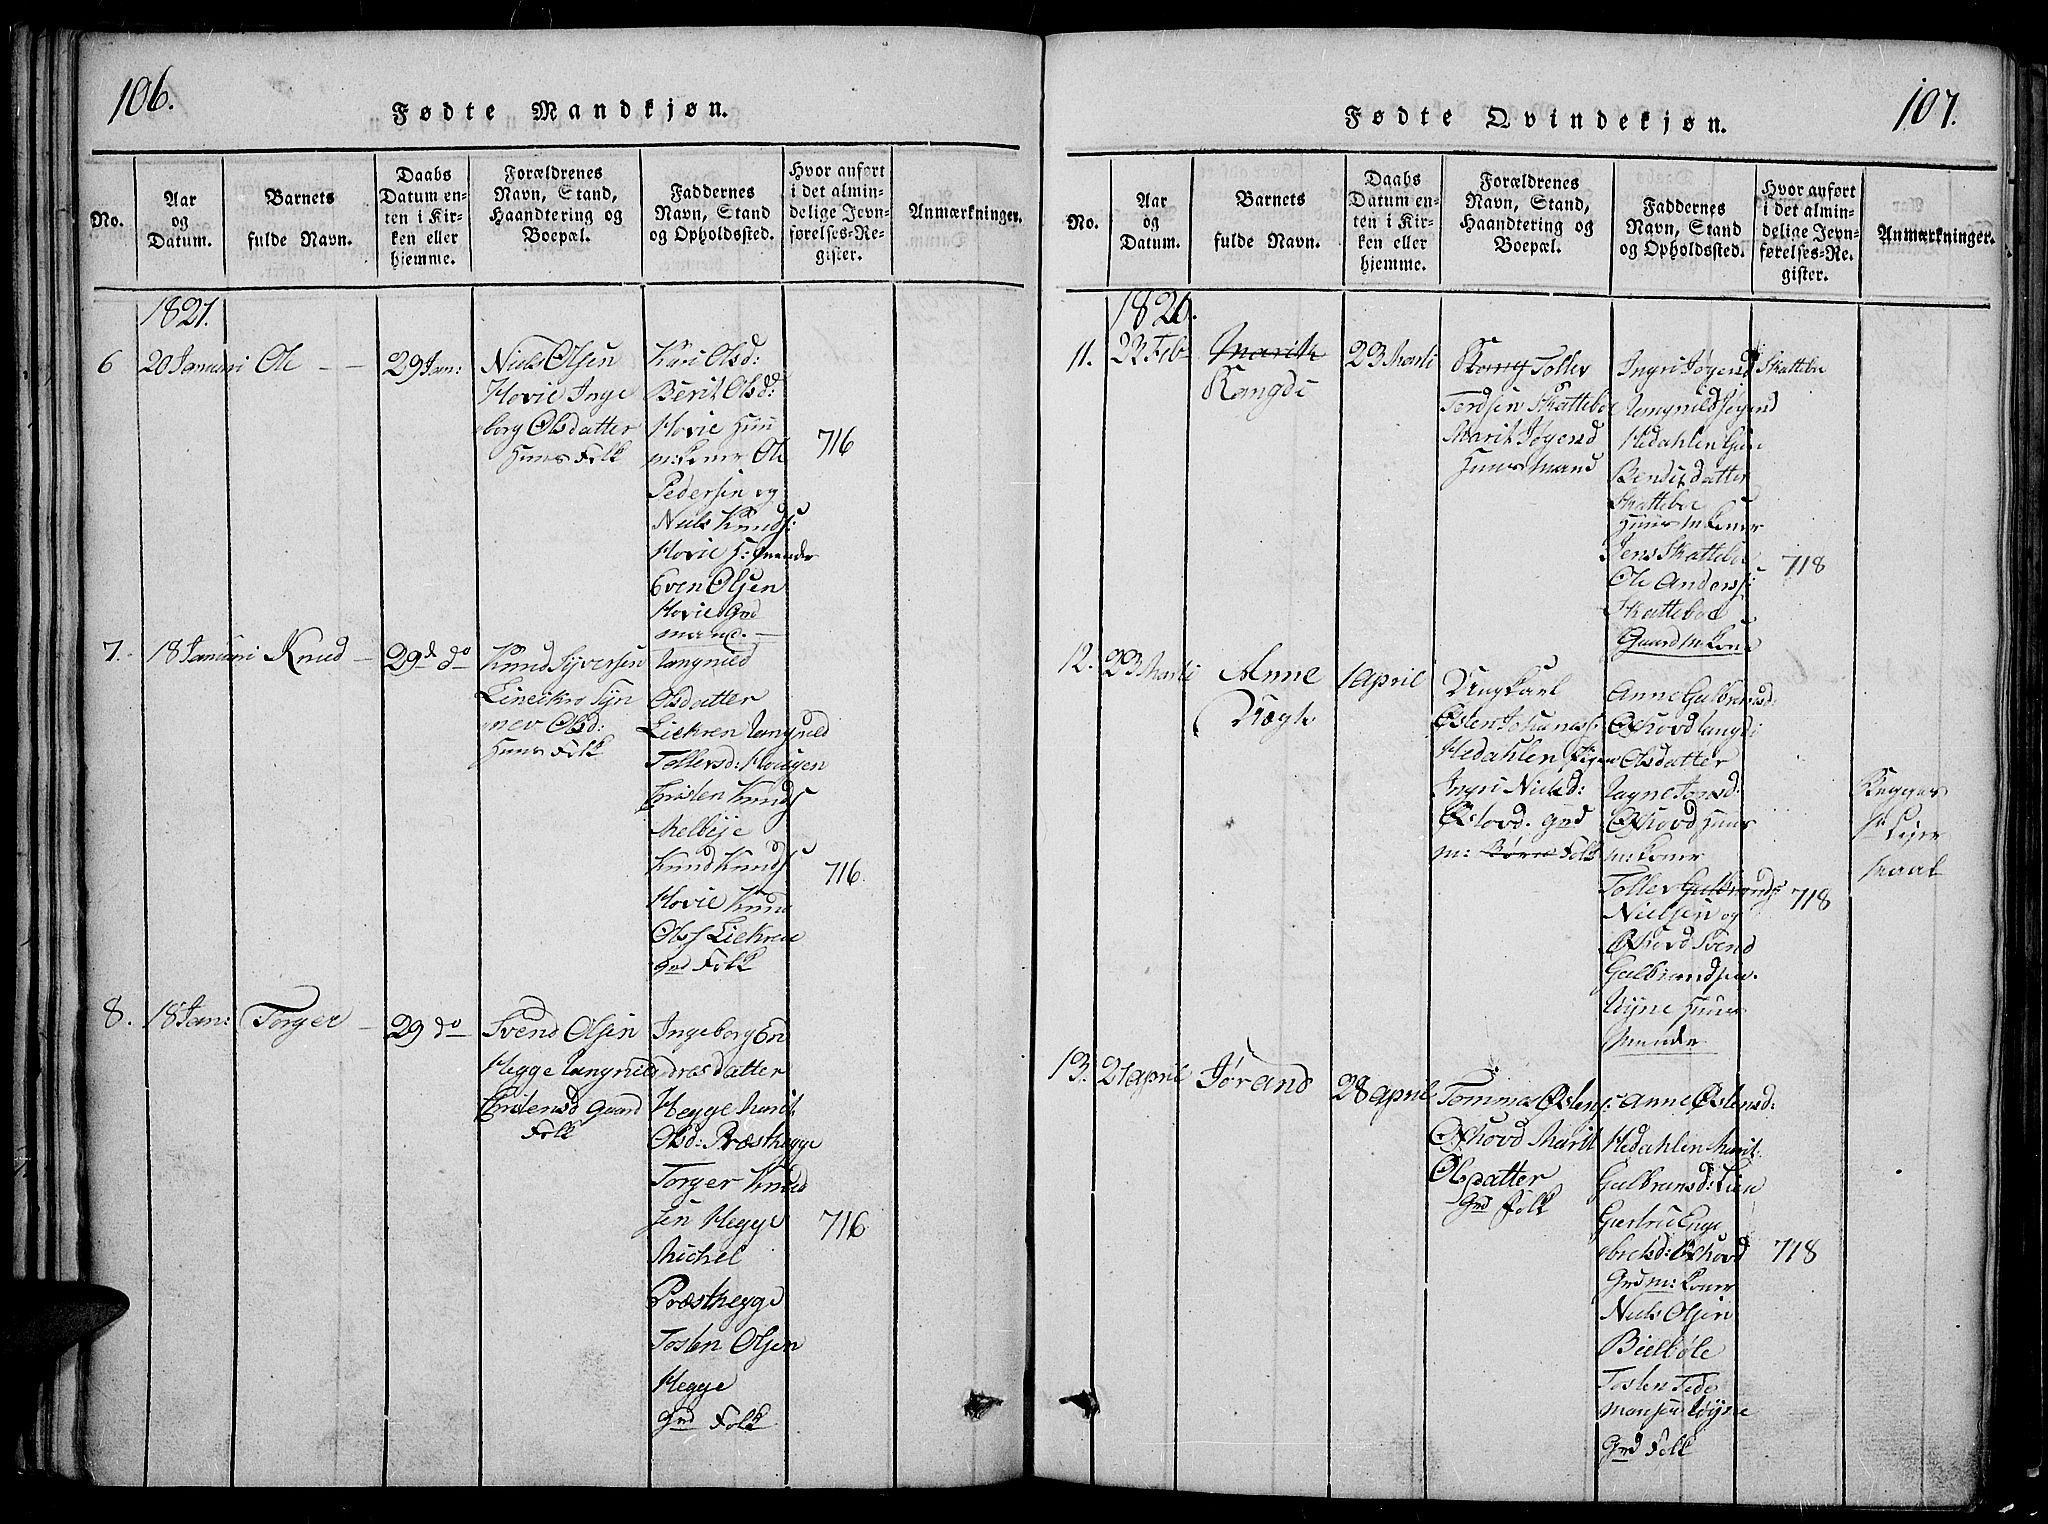 106.
Fødte Mandkjøn.
No.
Aar
og
Datum.
Barnets
fulde Navn.
Daabs
Datum en-
ten i Kir-
ken eller
hjemme.
Forældrenes
Navn, Stand,
Haandtering og
Boepæl.
Faddernes
Navn, Stand
og Opholdssted.
Hvor anført
i det almin-
delige Jevn-
førelses-Re-
gister.
Anmærkninger.
1821.
6
20 Januari
Ole
29 Jan:
Niels Olsen
Hovie Inge
borg Olsdatter
Huus Folk
Kari Olsd:
Berit Olsd:
Hovie Huu
m: koner Ole
Pedersen og
Niels Knuds:
Hovie H: mænder
Even Olsen
Hovie Grd
mand.
716
7.
18 Januari
Knud
29 do
Knud Syversen
Lieeikro Syn
nev Olsd:
Huus Folk
Rangnild
Olsdatter
Liekren Rangnild
Tollersd: Hougen
Christen Knuds
Melbye
Knud Knuds
Hovie Knud
Ols Liekren
Grd Folk
716
8.
18 Jan:
Torger
29 do
Svend Olsen
Hegge Rangnild
Christensd Gaard
Folk
Ingeborg En
dresdatter
Hegge Marit
Olsd: Præsthegge
Torger Knud
sen Hegge
Michel
Præsthegge
Tosten Olsen
Hegge
Grd Folk
716
107.
Fødte Qvindekjøn.
No.
Aar
og
Datum.
Barnets
fulde Navn.
Daabs
Datum en-
ten i Kir-
ken eller
hjemme.
Forældrenes
Navn, Stand,
Haandtering og
Boepæl.
Faddernes
Navn, Stand
og Opholdssted.
Hvor anført
i det almin-
delige Jevn-
førelses-Re-
gister.
Anmærkninger.
1820.
11.
22 Feb
Marit
Rangdi
23 Marti
Tollev
Tordsen Skatteboe
Marit Jøgensd
Huusmand
Ingri Jøgensd Skattebo
Rangnild Jøgensd
Hedahlen Guri
Bendixdatter
Skatteboe
Huus m koner
Jens Skatteboe
Ole Anders:
Skatteboe
Gaard m kone
718
12.
23 Marti
Anne
1 April
Ungkarl
Østen Johannes:
Hedahlen Pigen
Ingri Nielsd:
Øxhovd. Grd
m: Børn Folk
Anne Gulbransd:
Øxhovd Rangdi
Olsdatter
Ragne Jonsd:
Øxhovd Huus
m: koner
Tollev Gulbrands
Nielsen og
Øxhovd Svend
Gulbrandsen
Røyne Huus
mænde
718
Begges
1ste Lejer
maal
13.
21 April
Jørand
28 April
Tommas Østens:
Øxhovd Marit
Olsdatter
Grd Folk
Anne Østensd:
Hedahlen Marit
Gulbransd: Lien
Giertrud Enge
brektsd: Øxhovd
Grd m: koner
Niels Olsen
Bielbøle
Tosten Tide
mansen Røyne
Grd Folk
718